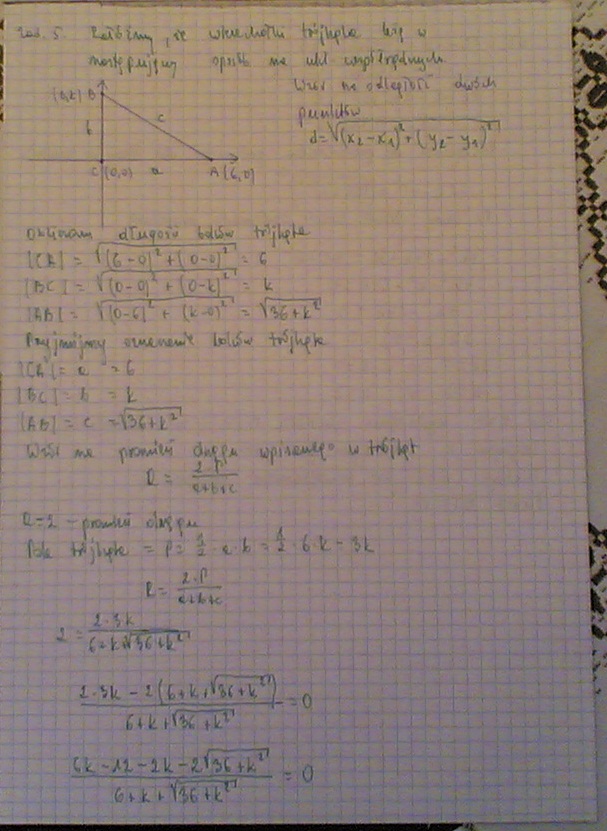 Zad. 5. Załóżmy, że wierzchołki trójkąta leżą w
następujący sposób na ukł. współrzędnych.
Wzór na odległość dwóch
punktów
d=√(x₂-x₁)²+(y₂-y₁)²
(0,k) B
b
c
C(0,0) a A(6,0)
Obliczam długość boków trójkąta
|CA| = √(6-0)²+(0-0)² = 6
|BC| = √(0-0)²+(0-k)² = k
|AB| = √(0-6)²+(k-0)² = √36+k²
Przyjmijmy oznaczenie boków trójkąta
|CA| = a = 6
|BC| = b = k
|AB| = c = √36+k²
Wzór na promień okręgu wpisanego w trójkąt
R = 2·P / a+b+c
R=2 - promień okręgu
Pole trójkąta = P = 1/2 · a · b = 1/2 · 6 · k = 3k
R = 2·P / a+b+c
2 = 2·3k / 6+k+√36+k²
2·3k - 2(6+k+√36+k²) / 6+k+√36+k² = 0
6k - 12 - 2k - 2√36+k² / 6+k+√36+k² = 0